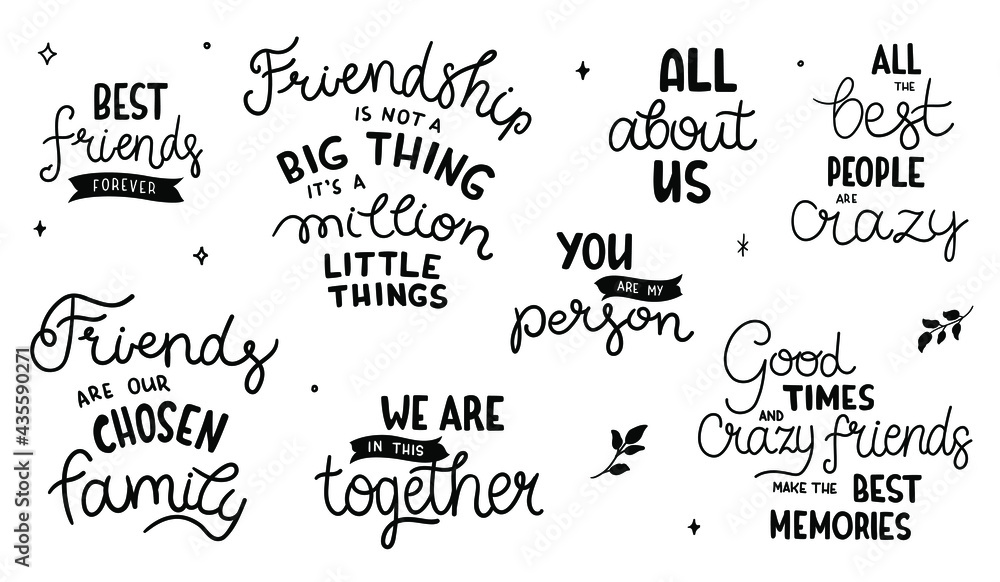 BEST
friends
FOREVER
Friendship
IS NOT A
BIG THING
IT'S A
million
LITTLE
THINGS
ALL
about
US
ALL
THE
best
PEOPLE
ARE
crazy
YOU
ARE MY
person
Friends
ARE OUR
CHOSEN
family
WE ARE
IN THIS
together
Good
TIMES
AND
Crazy friends
MAKE THE BEST
MEMORIES
Adobe Stock | #435590271